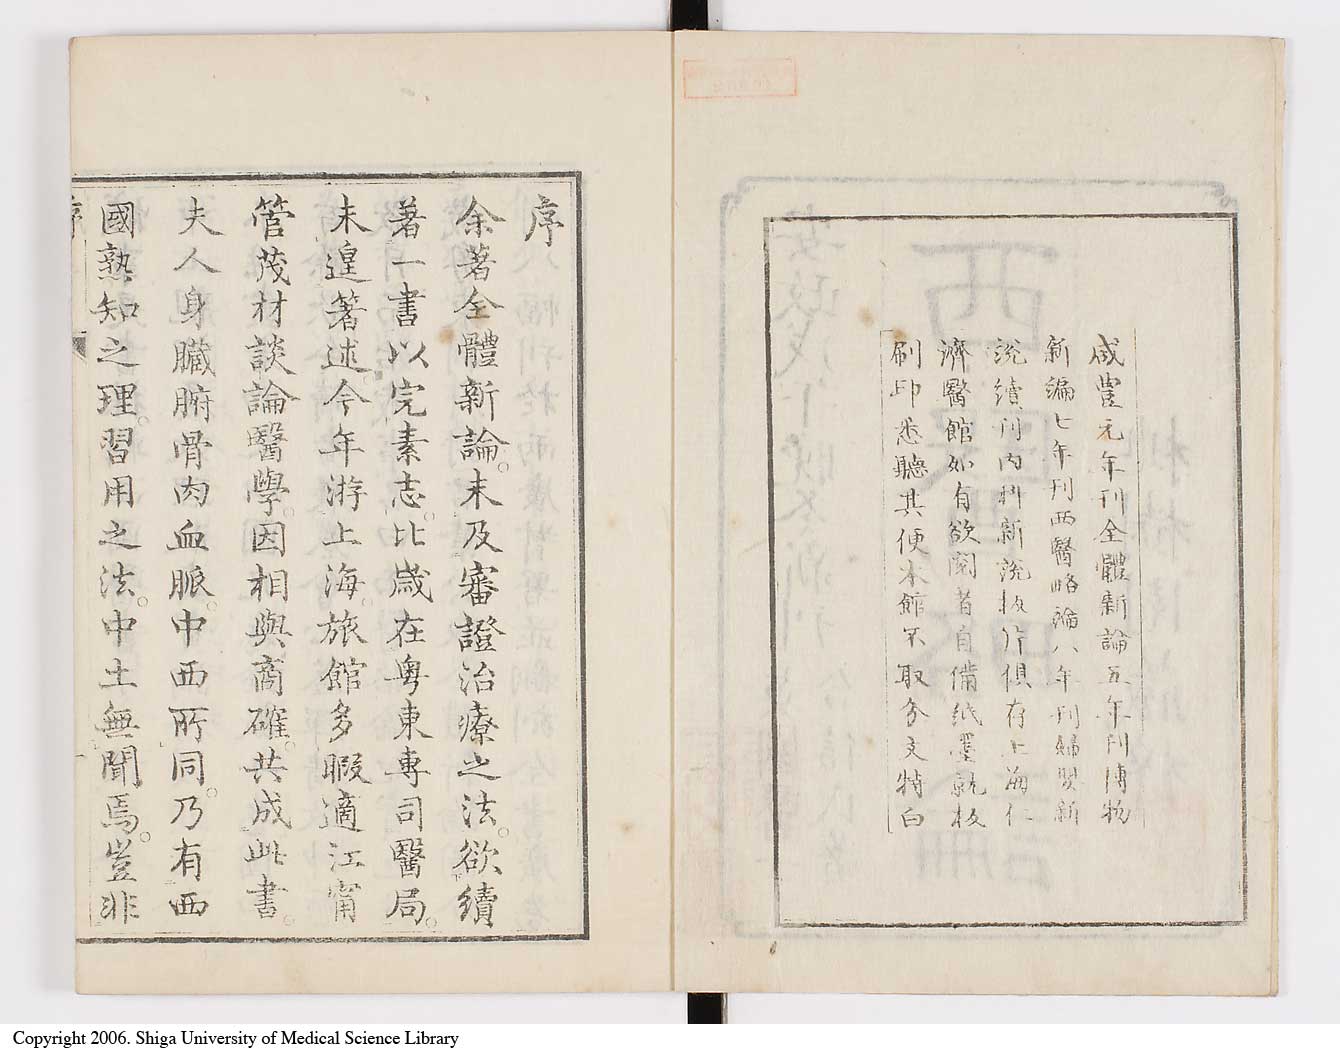 咸豊元年刊全體新論五年刊博物
新編七年刊西醫略論八年刊婦嬰新
說續刊内科新說板片俱存上海仁
濟醫館如有欲閱者自備紙墨就板
刷印悉聽其便本館不取分文特白
序
余著全體新論。未及審證治療之法。欲續
著一書以完素志。比歲在粤東專司醫局。
未遑著述。今年游上海。旅館多暇。適江甯
管茂材談論醫學。因相與商確。共成此書。
夫人身臓腑骨肉血脈。中西所同。乃有西
國熟知之理。習用之法。中土無聞焉。豈非
序
一
Copyright 2006. Shiga University of Medical Science Library